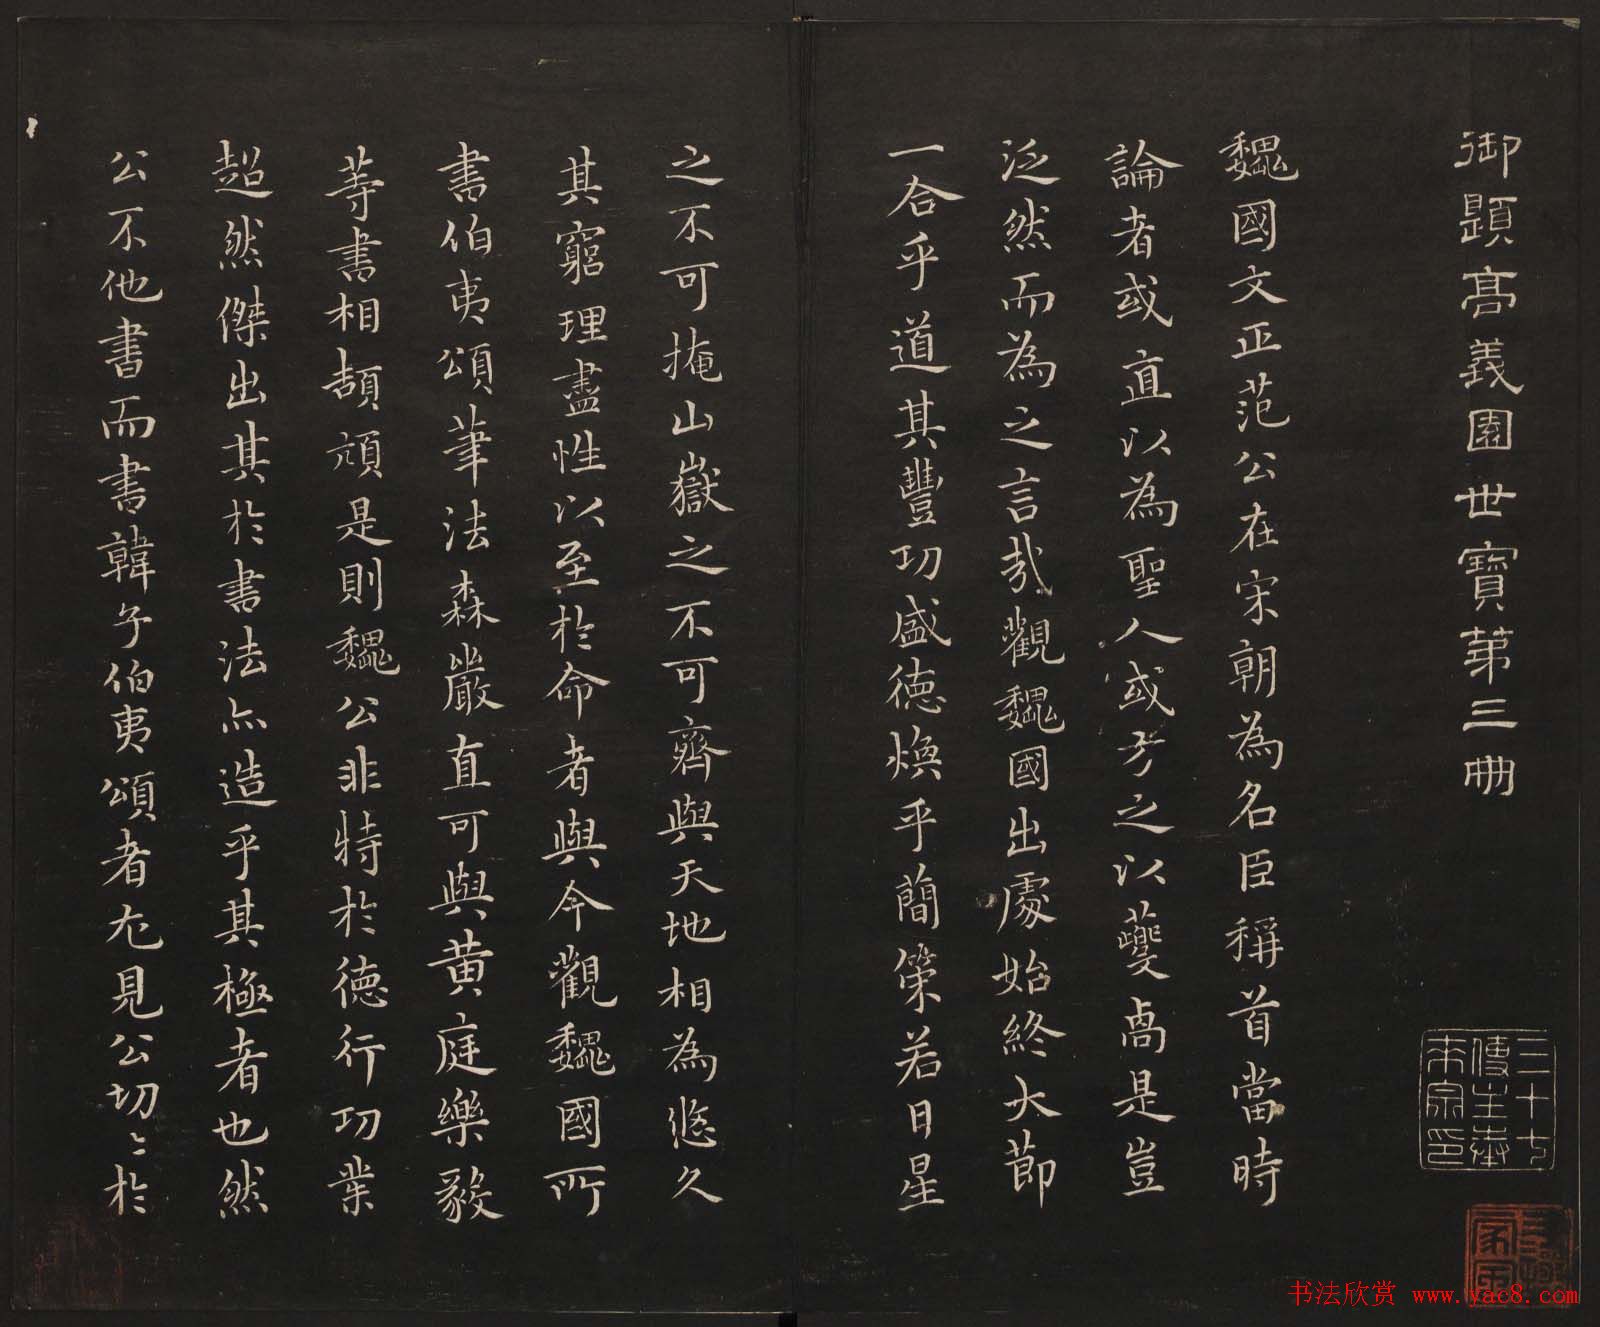 御題高義園世寶第三冊
魏國文正范公在宋朝為名臣稱首當時
論者或直以為聖人或方之以夔卨是豈
泛然而為之言哉觀魏國出處始終大節
一合乎道其豐功盛德煥乎簡策若日星
之不可掩山嶽之不可齊與天地相為悠久
其窮理盡性以至於命者與今觀魏國所
書伯夷頌筆法森嚴直可與黃庭樂毅
等書相頡頏是則魏公非特於德行功業
超然傑出其於書法亦造乎其極者也然
公不他書而書韓子伯夷頌者尤見公切〻於
三十七
傳主奉
宗印
书法欣赏 www.yac8.com